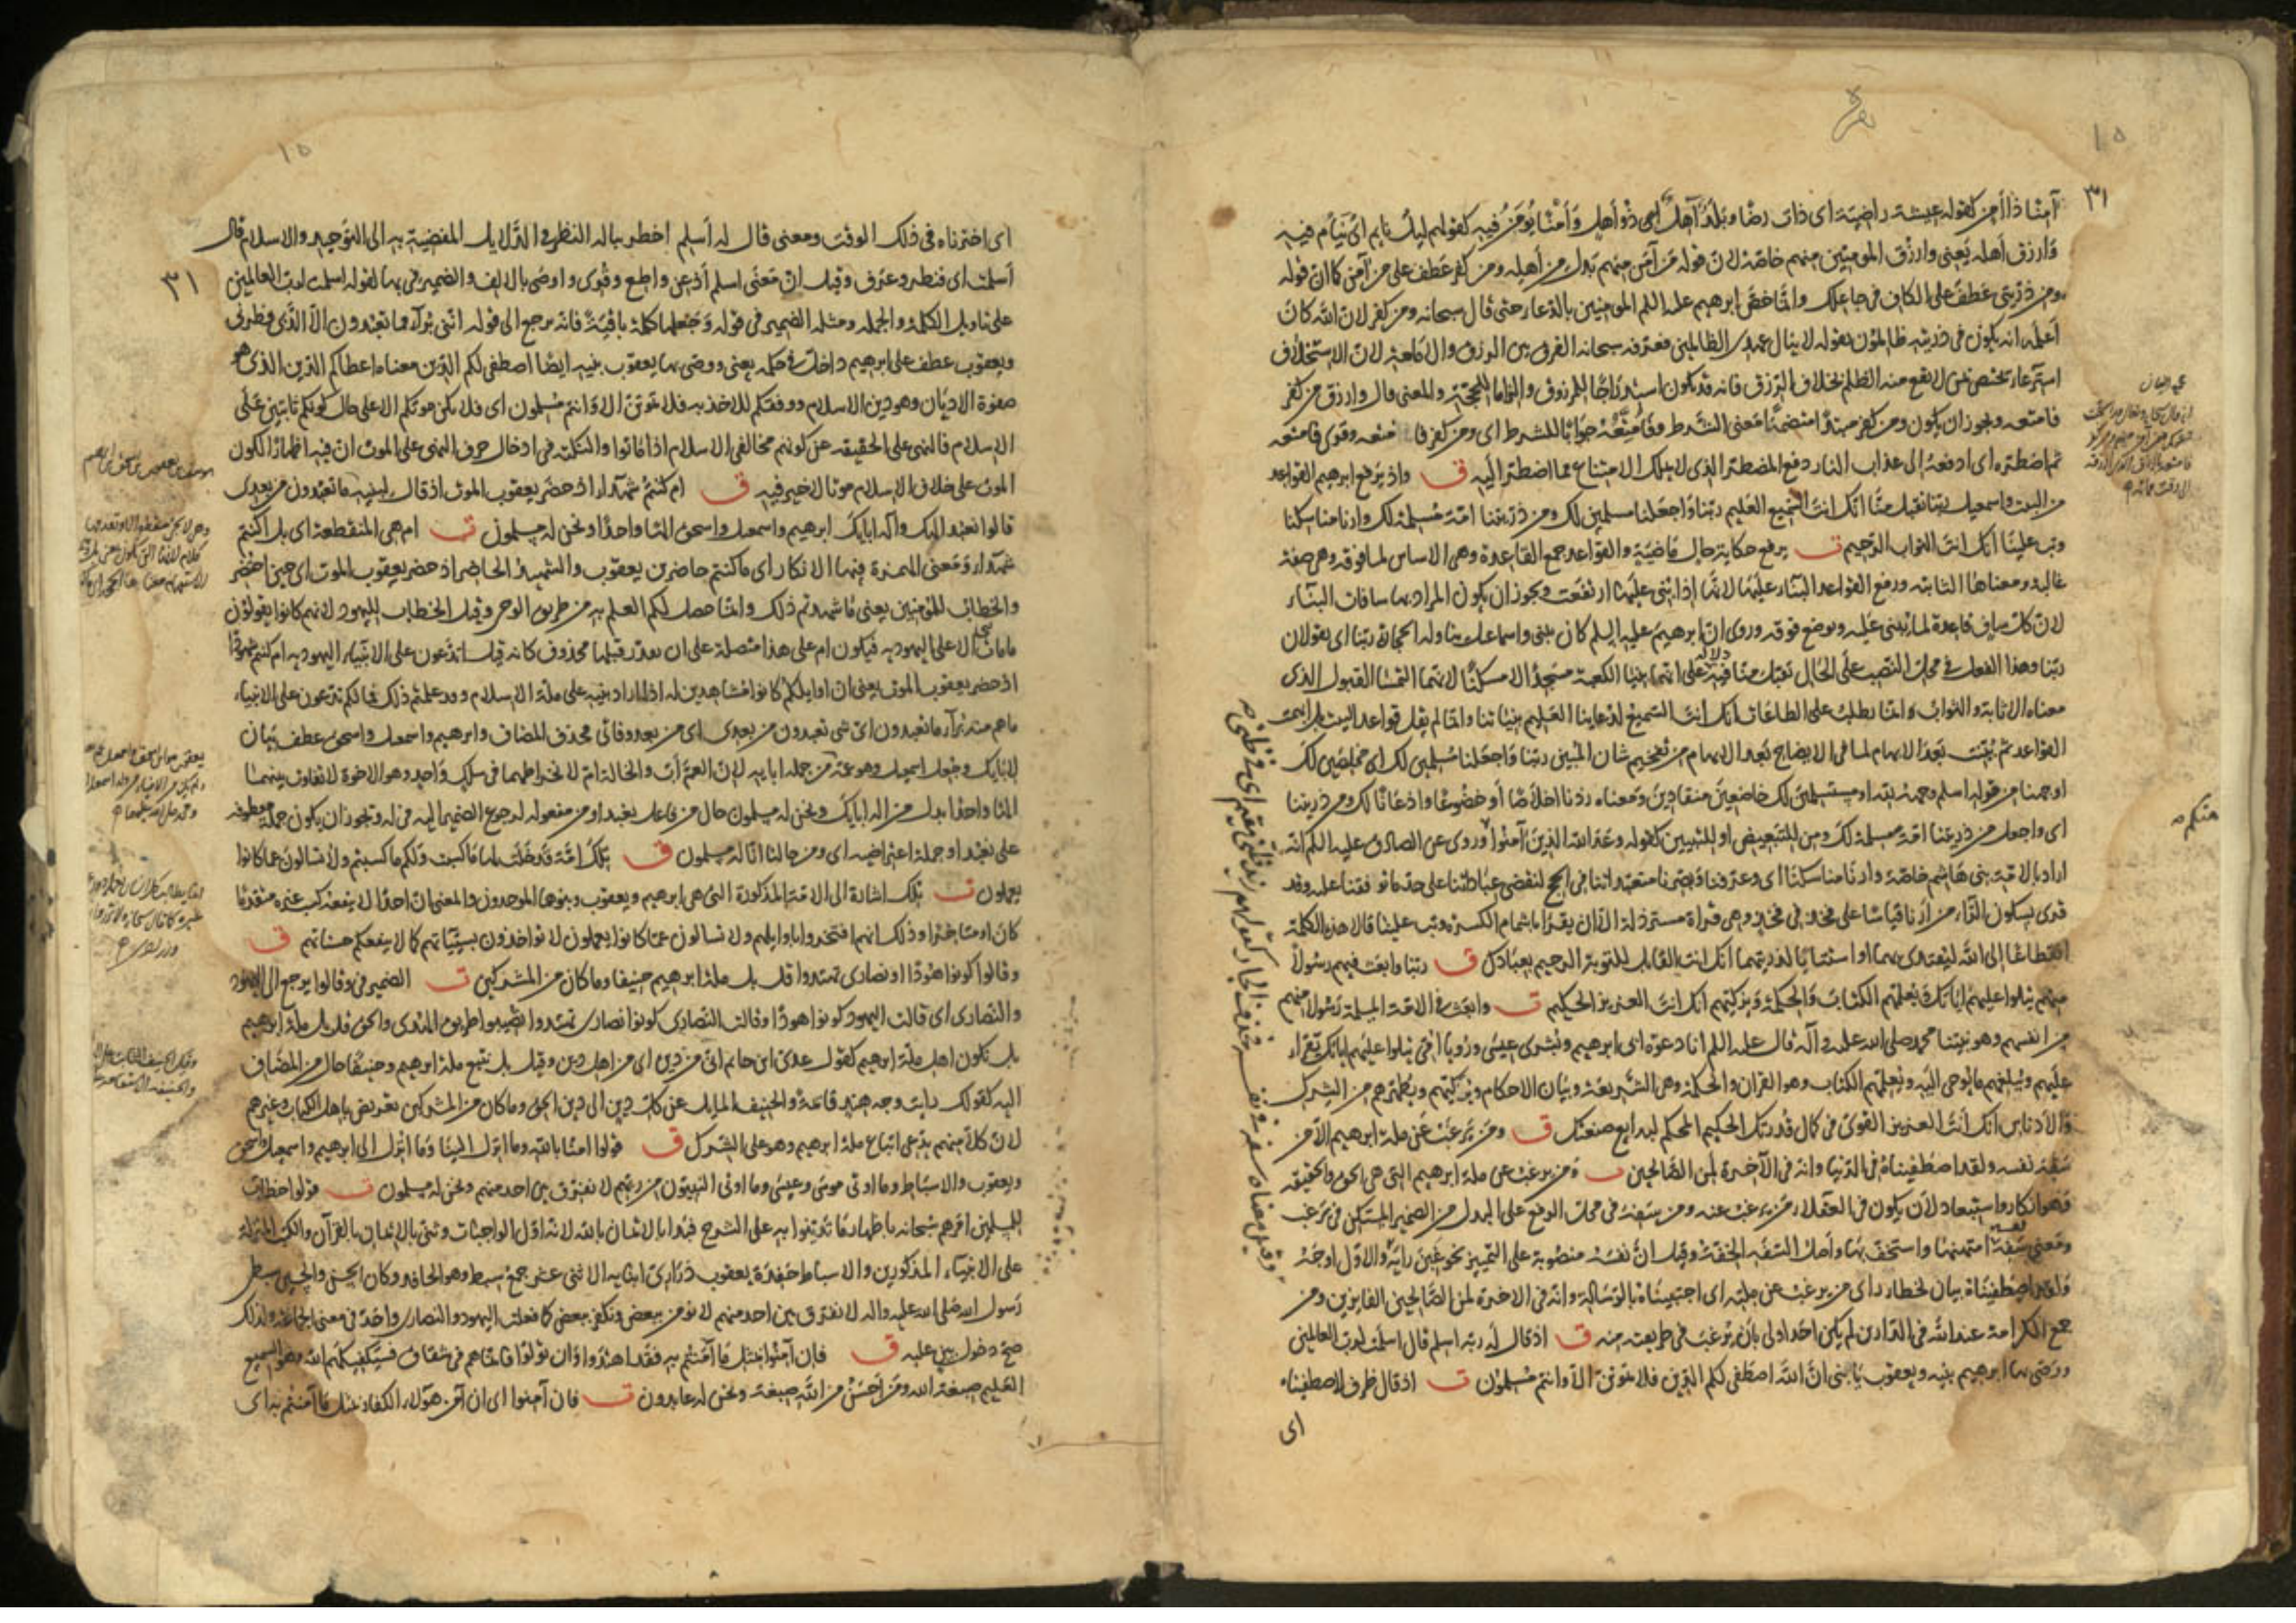 ١٥
٣١
آمنا ذا أمن كقوله عيشة راضية اى ذات رضا وبلد آهل اى ذو أهل وأمنا يؤمن فيه كقولهم ليل نايم اى ينام فيه
وارزق أهله يعنى وارزق المومنين منهم خاصة لان قوله من آمن منهم بدل من أهله ومن كفر عطف على من آمن كما ان قوله
ومن ذريتى عطف على الكاف فى جاعلك وانما خص ابرهيم عليه السلم المومنين بالدعاء حتى قال سبحانه ومن كفر لان الله كان
أعلمه انه يكون فى ذريته ظالمون بقوله لا ينال عهدى الظالمين فعرفه سبحانه الفرق بين الرزق والامامة لان الاستخلاف
استرعاء يختص بمن لا يقع منه الظلم بخلاف الرزق فانه قد يكون استدراجا للمرزوق والزاما للحجة والمعنى قال وارزق من كفر
فامتعه ويجوز ان يكون ومن كفر مبتدأ متضمنا معنى الشرط وفأمتعه جوابا للشرط اى ومن كفر فا متعه وقرى فامتعه
ثم اضطره اى ادفعه إلى عذاب النار دفع المضطر الذى لا يملك الامتناع مما اضطر اليه ق واذ يرفع ابرهيم القواعد
من البيت واسمعيل ربنا تقبل منا انك انت السميع العليم ربنا واجعلنا مسلمين لك ومن ذريتنا امة مسلمة لك وارنا مناسكنا
وتب علينا انك انت التواب الرحيم ت يرفع حكاية حال ماضية والقواعد جمع القاعدة وهى الاساس لما فوقه وهى صفة
غالبة ومعناها الثابتة ورفع القواعد البناء عليها لانها إذا بنى عليها ارتفعت ويجوز ان يكون المراد بها سافات البناء
لان كل ساف قاعدة لما يبنى عليه ويوضع فوقه وروى ان ابرهيم عليه السلم كان يبنى واسماعيل يناوله الحجارة ربنا اى يقولان
ربنا وهذا الفعل فى محل النصب على الحال تقبل منا فيه دلالة على انهما بنيا الكعبة مسجدا لا مسكنا لانهما التمسا القبول الذى
معناه الاثابة والثواب وانما يطلب على الطاعات انك انت السميع لدعاينا العليم بنياتنا وانما لم يقل قواعد البيت بل ابهمت
القواعد ثم بينت بعد الابهام لما فى الايضاح بعد الابهام من تفخيم شان المبين ربنا واجعلنا مسلمين لك اى مخلصين لك
اوجهنا من قوله اسلم وجهه لله او مستسلمين لك خاضعين منقادين ومعناه زدنا اخلاصا أو خضوعا واذعانا لك ومن ذريتنا
اى واجعل من ذريتنا امة مسلمة لك ومن للتبعيض او للتبيين كقوله وعد الله الذين آمنوا وروى عن الصادق عليه السلم انه
اراد بالامة بنى هاشم خاصة وارنا مناسكنا اى وعرفنا وبصرنا متعبداتنا فى الحج لنقضى عباداتنا على حد ما توفقنا عليه وقد
قرى بسكون الراء من أرنا قياسا على فخذ فى فخذ وهى قراة مسترذلة الا ان يقرأ باشمام الكسرة وتب علينا قالا هذه الكلمة
انقطاعا إلى الله ليقتدى بهما او استتابا لذريتهما انك انت القابل للتوبة الرحيم بعبادك ق ربنا وابعث فيهم رسولا
منهم يتلوا عليهم اياتك ويعلمهم الكتاب والحكمة ويزكيهم انك انت العزيز الحكيم ت وابعث فى الامة المسلمة رسولا منهم
من انفسهم وهو نبينا محمد صلى الله عليه وآله قال عليه السلم انا دعوة ابى ابرهيم وبشرى عيسى ورؤيا امى يتلوا عليهم اياتك يقراء
عليهم ويبلغهم ما يوحى اليه ويعلمهم الكتاب وهو القران والحكمة وهى الشريعة وبيان الاحكام ويزكيهم ويطهرهم من الشرك
والادناس انك انت العزيز القوى فى كمال قدرتك الحكيم المحكم لبدايع صنعتك ق ومن يرغب عن ملة ابرهيم الا من
سفه نفسه ولقد اصطفيناه فى الدنيا وانه فى الآخرة لمن الصالحين ت ومن يرغب عن ملة ابرهيم التى هى الحق والحقيقة
فهو انكار واستبعاد لأن يكون فى العقلاء من يرغب عنه ومن سفه فى محل الرفع على البدل من الضمير المستكن فى يرغب
ومعنى سفه نفسه امتهنها واستخف بها واصل السفه الخفة وقيل ان نفسه منصوبة على التمييز نحو غبن رايه والاول اوجه
ولقد اصطفيناه بيان لخطاء راى من يرغب عن ملته اى اجتبيناه بالرسالة وانه فى الاخرة لمن الصالحين الفايزين ومن
جمع الكرامة عند الله فى الدارين لم يكن احد اولى بأن يرغب فى طريقته منه ق اذ قال له ربه اسلم قال اسلمت لرب العالمين
ووصى بها ابرهيم بنيه ويعقوب يا بنى ان الله اصطفى لكم الدين فلا تموتن الا وانتم مسلمون ت اذ قال ظرف لاصطفيناه
اى
منكم
١٥
٣١
اى اخترناه فى ذلك الوقت ومعنى قال له أسلم اخطر بباله النظر فى الدلايل المفضية به الى التوحيد والاسلام قال
أسلمت اى فنظر وعرف وقيل ان معنى اسلم أذعن واطع وقرى واوصى بالالف والضمير فى بها لقوله اسلمت لرب العالمين
على تاويل الكلمة والجملة ومثله الضمير فى قوله وجعلها كلمة باقية فانه يرجع الى قوله اننى براء مما تعبدون الا الذى فطرنى
ويعقوب عطف على ابرهيم داخل فى حكمه يعنى ووصى بها يعقوب بنيه ايضا اصطفى لكم الدين معناه اعطاكم الدين الذى هو
صفوة الاديان وهو دين الاسلام ووفقكم للاخذ به فلا تموتن الا وانتم مسلمون اى فلا يكن موتكم الا على حال كونكم ثابتين على
الاسلام فالنهى على الحقيقة عن كونهم مخالفى الاسلام اذا ماتوا والنكتة فى ادخال حرف النهى على الموت ان فيه اظهارا لكون
الموت على خلاف الاسلام موتا لا خير فيه ق ام كنتم شهداء اذ حضر يعقوب الموت اذ قال لبنيه ما تعبدون من بعدى
قالوا نعبد الهك واله ابايك ابرهيم واسمعيل واسحق الها واحدا ونحن له مسلمون ت ام هى المنقطعة اى بل اكنتم
شهداء ومعنى الهمزة فيها الانكار اى ما كنتم حاضرين يعقوب والشهيد الحاضر اذ حضر يعقوب الموت اى حين احتضر
والخطاب للمومنين يعنى ما شهدتم ذلك وانما حصل لكم العلم به من طريق الوحى وقيل الخطاب لليهود لانهم كانوا يقولون
ما مات نبى الا على اليهودية فيكون ام على هذا متصلة على ان يقدر قبلها محذوف كانه قيل اتدعون على الانبياء اليهودية ام كنتم شهودا
اذ حضر يعقوب الموت يعنى ان اوايلكم كانوا مشاهدين له اذ اراد بنيه على ملة الاسلام وقد علمتم ذلك فما لكم تدعون على الانبياء
ما هم منه براء ما تعبدون اى شى تعبدون من بعدى اى من بعد وفاتى فحذف المضاف وابرهيم واسمعيل واسحق عطف بيان
لابايك وجعل اسمعيل وهو عمه من جملة ابايه لان العم أب والخالة ام لانخراطهما فى سلك واحد وهو الاخوة لا تفاوت بينهما
الها واحدا بدل من اله ابايك ونحن له مسلمون حال من فاعل نعبد او من مفعوله لرجوع الضمير اليه فى له ويجوز ان يكون جملة معطوفة
على نعبد او جملة اعتراضية اى ومن حالنا انا له مسلمون ق تلك امة قد خلت لها ما كسبت ولكم ما كسبتم ولا تسالون عما كانوا
يعملون ت تلك اشارة الى الامة المذكورة التى هى ابرهيم ويعقوب وبنوهما الموحدون والمعنى ان احدا لا ينفعه كسب غيره متقدما
كان او متاخرا وذلك انهم افتخروا باوايلهم ولا تسالون عما كانوا يعملون لا تواخذون بسيئاتهم كما لا ينفعكم حسناتهم ق
وقالوا كونوا هودا او نصارى تهتدوا قل بل ملة ابرهيم حنيفا وما كان من المشركين ت الضمير فى وقالوا يرجع الى اليهود
والنصارى اى قالت اليهود كونوا هودا وقالت النصارى كونوا نصارى تهتدوا تصيبوا طريق الهدى والحق قل بل ملة ابرهيم
بل نكون اهل ملة ابرهيم كقول عدى ابن حاتم انى من دين اى من اهل دين وقيل بل نتبع ملة ابرهيم وحنيفا حال من المضاف
اليه كقولك رايت وجه هند قائمة والحنيف المايل عن كل دين الى دين الحق وما كان من المشركين تعريض باهل الكتاب وغيرهم
لان كلا منهم يدعى اتباع ملة ابرهيم وهو على الشرك ق قولوا امنا بالله وما انزل الينا وما انزل الى ابرهيم واسمعيل واسحق
ويعقوب والاسباط وما اوتى موسى وعيسى وما اوتى النبيون من ربهم لا نفرق بين احد منهم ونحن له مسلمون ت قولوا خطاب
للمسلمين امرهم سبحانه باظهار ما تدينوا به على الشرح فبدا بالايمان بالله لانه اول الواجبات وثنى بالايمان بالقرآن والكتب المنزلة
على الانبياء المذكورين والاسباط حفدة يعقوب ذرارى ابنايه الاثنى عشر جمع سبط وهو الحافد وكان الحسن والحسين سبطى
رسول الله صلى الله عليه واله لا نفرق بين احد منهم لا نومن ببعض ونكفر ببعض كما فعلت اليهود والنصارى واحد فى معنى الجماعة ولذلك
صح دخول بين عليه ق فان آمنوا بمثل ما آمنتم به فقد اهتدوا وان تولوا فانما هم فى شقاق فسيكفيكهم الله وهو السميع
العليم صبغة الله ومن أحسن من الله صبغة ونحن له عابدون ت فان آمنوا اى ان آمن هؤلاء الكفار بمثل ما آمنتم به اى